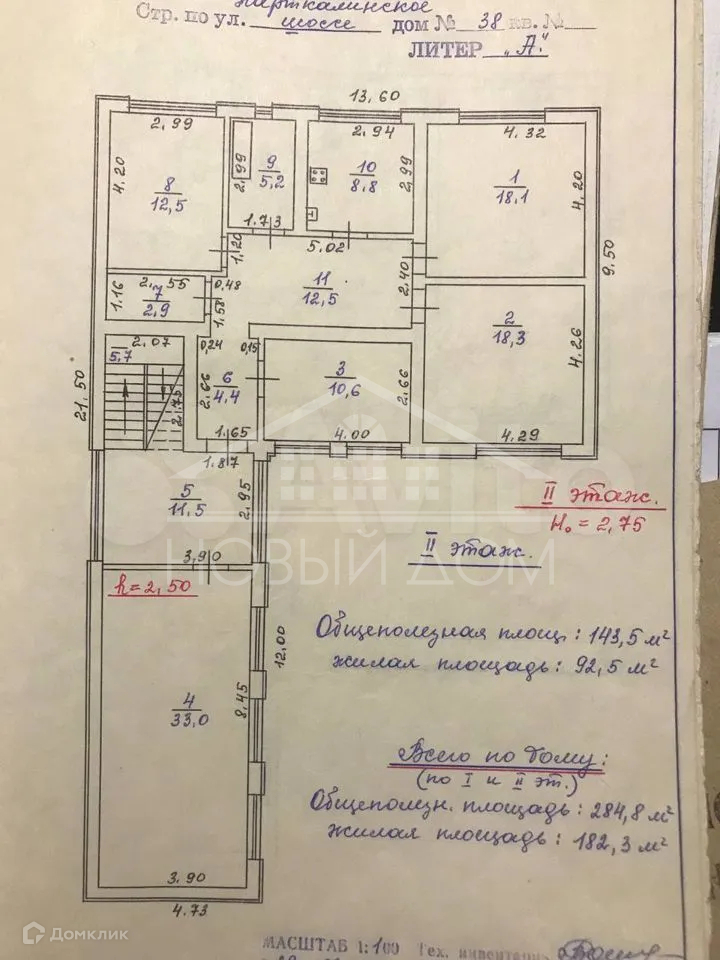 Стр. по ул. шоссе дом № 38 кв. №
ЛИТЕР „А“
13,60
2,99
4,20
8
12,5
2,99
9
5,2
1.73
2,94
10
8,8
2,99
4,32
1
18,1
4,20
9,50
1,20
5,02
11
12,5
2,40
2,55
1,16
7
2,9
0,48
1,58
2
18,3
4,26
4,29
2,07
5,7
2,75
0,24
0,15
6
4,4
2,66
1,65
3
10,6
2,66
4,00
21,50
1,87
5
11,5
2,95
3,90
h=2,50
4
33,0
8,45
12,00
3,90
4,73
II этаж.
H₀ = 2,75
II этаж.
НОВЫЙ ДОМ
Общеполезная площ.: 143,5 м²
жилая площадь: 92,5 м²
Всего по дому:
(по I и II эт.)
Общеполезн. площадь: 284,8 м²
жилая площадь: 182,3 м²
Домклик
МАСШТАБ 1:100 Тех. инвентариз.